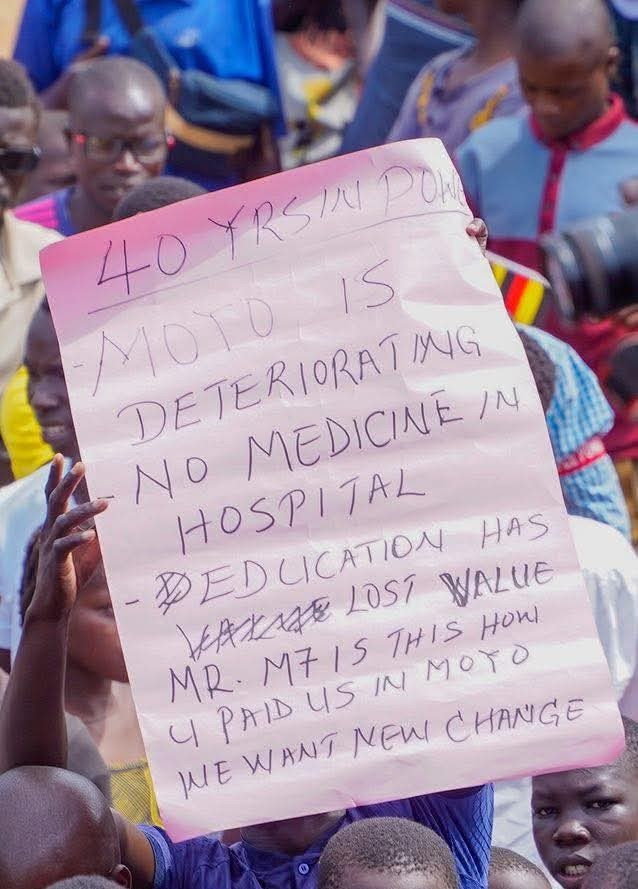 40 YRS IN POWE
- MOYO IS
DETERIORATING
- NO MEDICINE IN
HOSPITAL
- EDUCATION HAS
LOST VALUE
MR. M7 IS THIS HOW
U PAID US IN MOYO
WE WANT NEW CHANGE